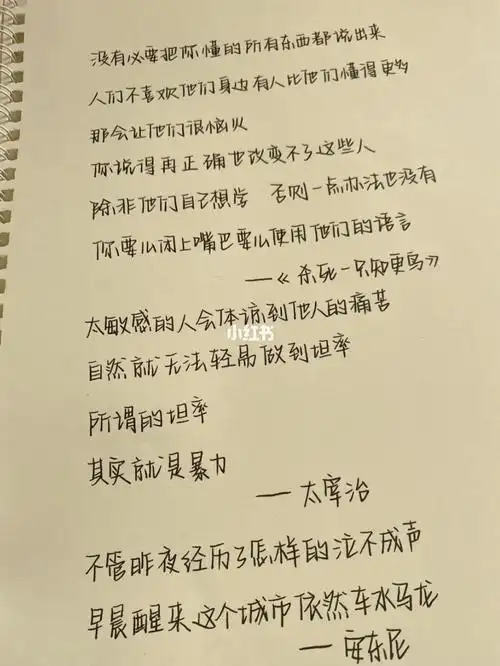 没有必要把你懂的所有东西都说出来
人们不喜欢他们身边有人比他们懂得更多
那会让他们很恼火
你说得再正确也改变不了这些人
除非他们自己想学 否则一点办法也没有
你要么闭上嘴巴要么使用他们的语言
——《杀死一只知更鸟》
太敏感的人会体谅到他人的痛苦
小红书
自然就无法轻易做到坦率
所谓的坦率
其实就是暴力
——太宰治
不管昨夜经历了怎样的泣不成声
早晨醒来这个城市依然车水马龙
——安东尼